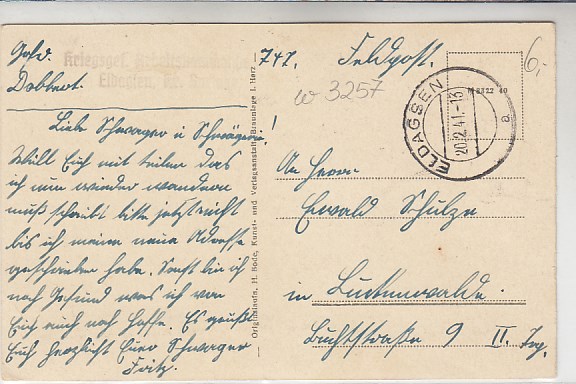 Gefr.
747.
Feldpost.
Kriegsgef. Arbeits
Eldagsen, Kr.
Lieber Schwager u Schwägerin!
Will Euch mit teilen das
ich nun wieder wandern
muß schreibt bitte jetzt nicht
bis ich meine neue Adresse
geschrieben habe. Sonst bin ich
noch Gesund was ich von
Euch auch noch hoffe. Es grüßt
Euch herzlicht Euer Schwager
Fritz.
Originalaufn. H. Bode, Kunst- und Verlagsanstalt, Braunlage i. Harz
W 3257
6,-
M 8322 40
ELDAGSEN
20.2.41.-13
a
An Herrn
Ewald Schulze
in Luckenwalde.
Buchtstraße 9 II. Trg.